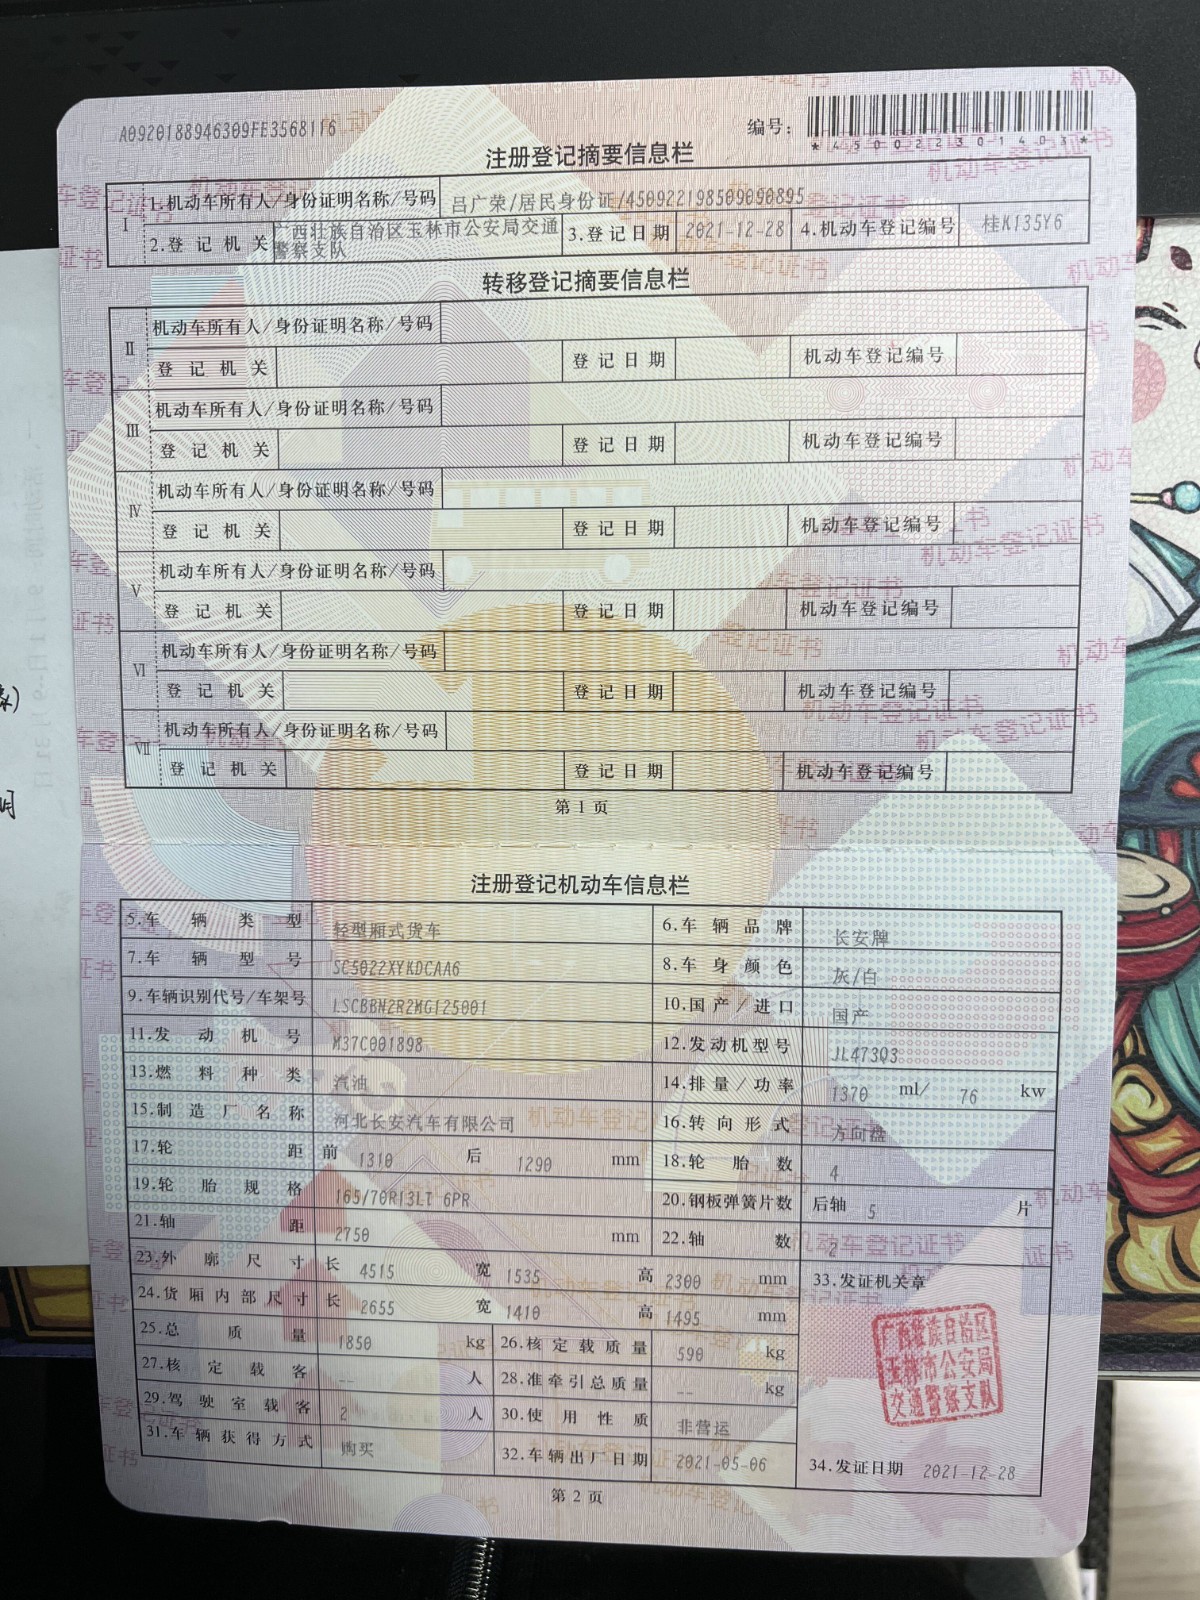 A0920188946309FE3568116
编号:
*450022301403*
注册登记摘要信息栏
I
1.机动车所有人/身份证明名称/号码 吕广荣/居民身份证/450922198509090895
2.登记机关 广西壮族自治区玉林市公安局交通警察支队 3.登记日期 2021-12-28 4.机动车登记编号 桂K135Y6
转移登记摘要信息栏
II
机动车所有人/身份证明名称/号码
登记机关 登记日期 机动车登记编号
III
机动车所有人/身份证明名称/号码
登记机关 登记日期 机动车登记编号
IV
机动车所有人/身份证明名称/号码
登记机关 登记日期 机动车登记编号
V
机动车所有人/身份证明名称/号码
登记机关 登记日期 机动车登记编号
VI
机动车所有人/身份证明名称/号码
登记机关 登记日期 机动车登记编号
VII
机动车所有人/身份证明名称/号码
登记机关 登记日期 机动车登记编号
第1页
注册登记机动车信息栏
5.车辆类型 轻型厢式货车 6.车辆品牌 长安牌
7.车辆型号 SC5022XYKDCAA6 8.车身颜色 灰/白
9.车辆识别代号/车架号 LSCBBN2R2MG125001 10.国产/进口 国产
11.发动机号 M37C001898 12.发动机型号 JL473Q3
13.燃料种类 汽油 14.排量/功率 1370 ml/ 76 kw
15.制造厂名称 河北长安汽车有限公司 16.转向形式 方向盘
17.轮距 前 1310 后 1290 mm 18.轮胎数 4
19.轮胎规格 165/70R13LT 6PR 20.钢板弹簧片数 后轴 5 片
21.轴距 2750 mm 22.轴数 2
23.外廓尺寸 长 4515 宽 1535 高 2300 mm 33.发证机关章
24.货厢内部尺寸 长 2655 宽 1410 高 1495 mm
25.总质量 1850 kg 26.核定载质量 590 kg
27.核定载客 -- 人 28.准牵引总质量 -- kg
29.驾驶室载客 2 人 30.使用性质 非营运
31.车辆获得方式 购买 32.车辆出厂日期 2021-05-06 34.发证日期 2021-12-28
广西壮族自治区
玉林市公安局
交通警察支队
第2页